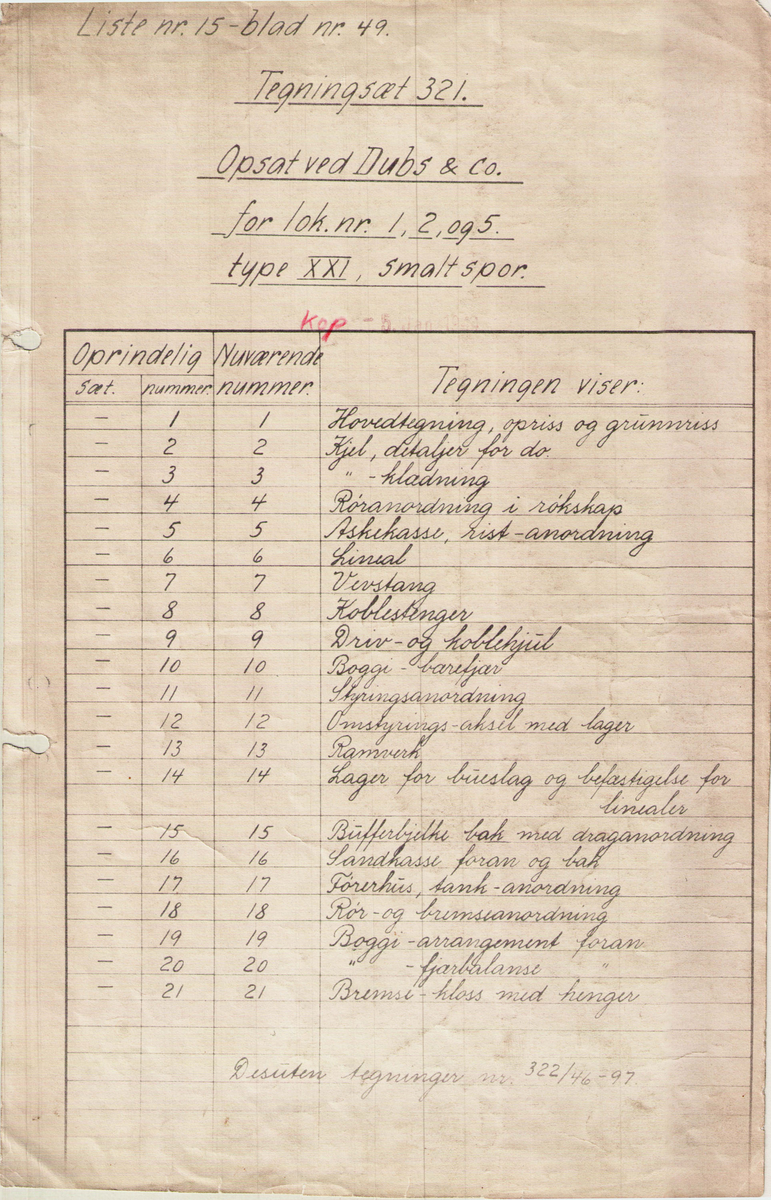 Liste nr. 15 - blad nr. 49.
Tegningsæt 321.
Opsat ved Dubs & Co.
for lok. nr. 1, 2, og 5.
type XXI, smalt spor.
Kop - 5.
Oprindelig Nuværende
sæt. nummer. nummer. Tegningen viser:
- 1 1 Hovedtegning, opriss og grunnriss
- 2 2 Kjel, detaljer for do.
- 3 3 " - klædning
- 4 4 Röranordning i rökskap
- 5 5 Askekasse, rist-anordning
- 6 6 Lineal
- 7 7 Veivstang
- 8 8 Koblestenger
- 9 9 Driv- og koblehjul
- 10 10 Boggi - bærefjær
- 11 11 Styringsanordning
- 12 12 Omstyrings-aksel med lager
- 13 13 Ramverk
- 14 14 Lager for bueslag og befæstigelse for
linealer
- 15 15 Bufferbjelke bak med draganordning
- 16 16 Sandkasse foran og bak
- 17 17 Förerhus, tank-anordning
- 18 18 Rör- og bremseanordning
- 19 19 Boggi - arrangement foran
- 20 20 " - fjærbalanse "
- 21 21 Bremse - kloss med henger
Desuten tegninger nr. 322/46-97